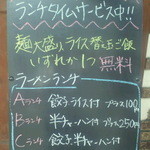 ランチタイムサービス中!!
麺大盛り、ライス替え玉ご飯
いずれか1つ無料
ラーメンランチ
Aランチ 餃子ライス付 プラス100円
Bランチ 半チャーハン付 プラス250円
Cランチ 餃子半チャーハン付